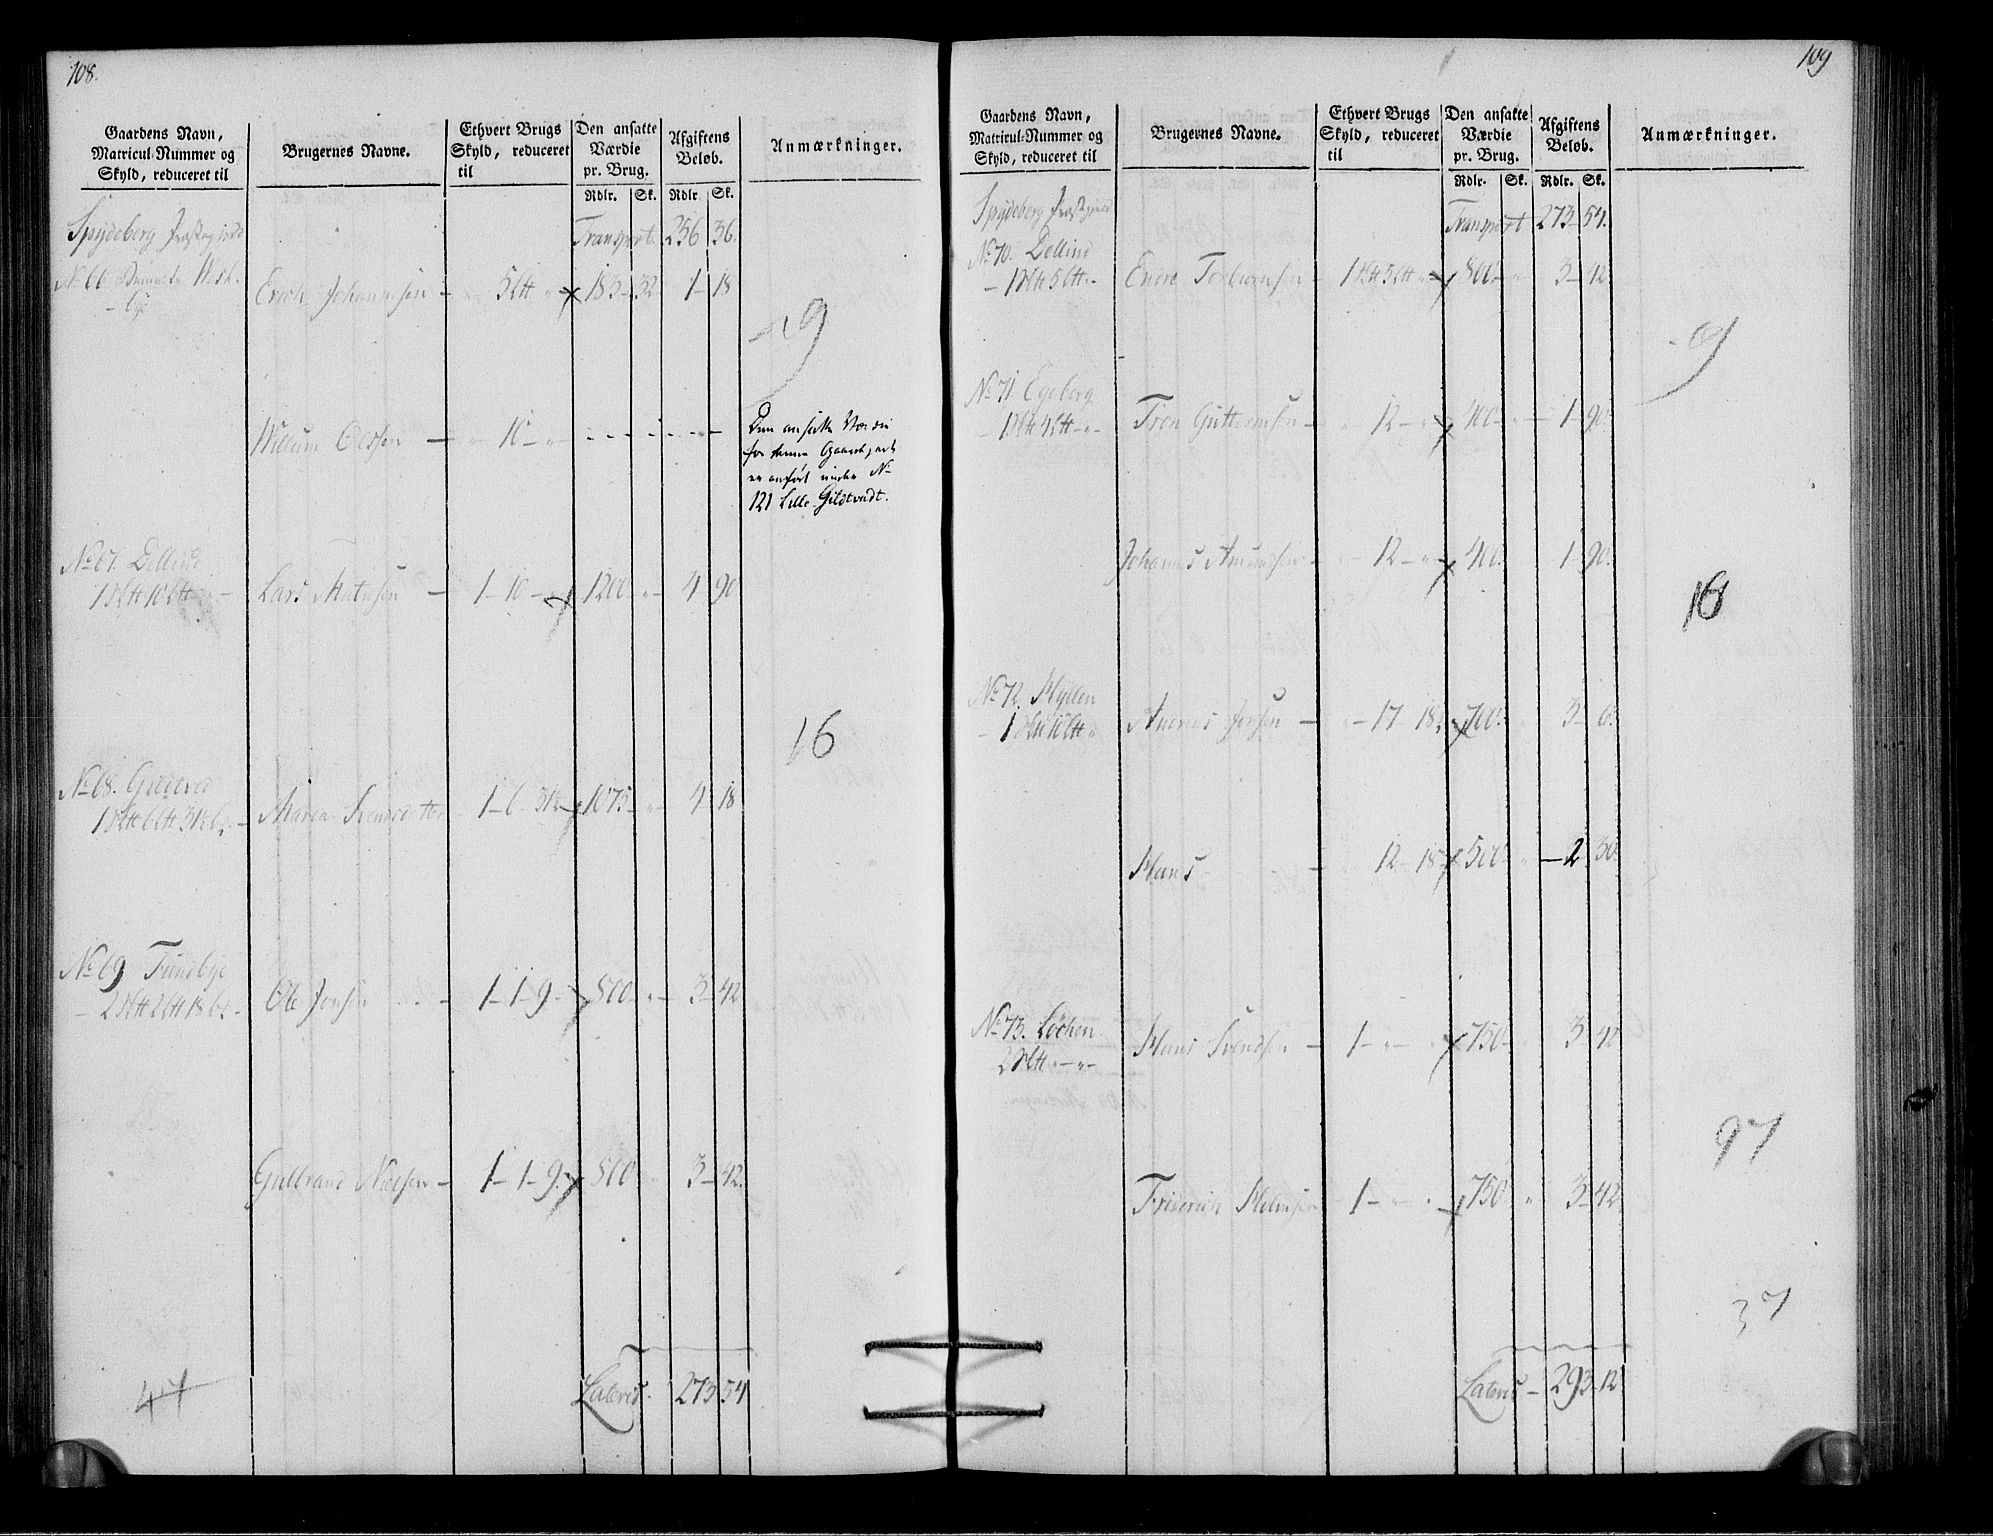 108.
Gaardens Navn,
Matricul-Nummer og
Skyld, reduceret til
Brugernes Navne.
Ethvert Brugs
Skyld, reduceret
til
Den ansatte
Værdie
pr. Brug.
Rdlr. Sk.
Afgiftens
Beløb.
Rdlr. Sk.
Anmærkninger.
Spydeberg Præstegield
Transport. 256 36.
No 66 Vest-
bye
Erich Johannesen 5 ℔ 183 32 1 18
9
Willum Olsen 10
Den ansatte Værdie
for denne Gaardpart
er anført under No
121 Lille Gilstvedt.
No 67. Dellind
1 S℔ 10 ℔
Lars Matisen 1 10 1200 4 90
16
No 68. Gilstved
1 S℔ 6 ℔ 3
Maren Svendsdatter 1 6 1075 4 18
No 69 Fundbye
2 S℔ 2 ℔ 18
Ole Jonsen 1 1 9 800 3 42
Gulbrand Nielsen 1 1 9. 800 3 42.
Lateris 273 54
47
109
Gaardens Navn,
Matricul-Nummer og
Skyld, reduceret til
Brugernes Navne.
Ethvert Brugs
Skyld, reduceret
til
Den ansatte
Værdie
pr. Brug.
Rdlr. Sk.
Afgiftens
Beløb.
Rdlr. Sk.
Anmærkninger.
Spydeberg Præstegield
Transport 273 54.
No 70. Dellind
1 S℔ 5 ℔
Endre Torbiørnsen 1 S℔ 5 ℔ 800 3 12
9
No 71 Egeberg
1 S℔ 4 ℔
Tron Guttormsen 12 400 1 90
Johannes Amundsen 12 400 1 90.
16
No 72. Hyllen
1 S℔ 10 ℔
Andreas Jensen 17 18 700 3 6
Hans 12 18 500 2 30
No 73. Løchen
2 S℔
Hans Svendsen 1 750 3 42
97
Friderich Holmsen 1 750 3 42
37
Lateris 293 12